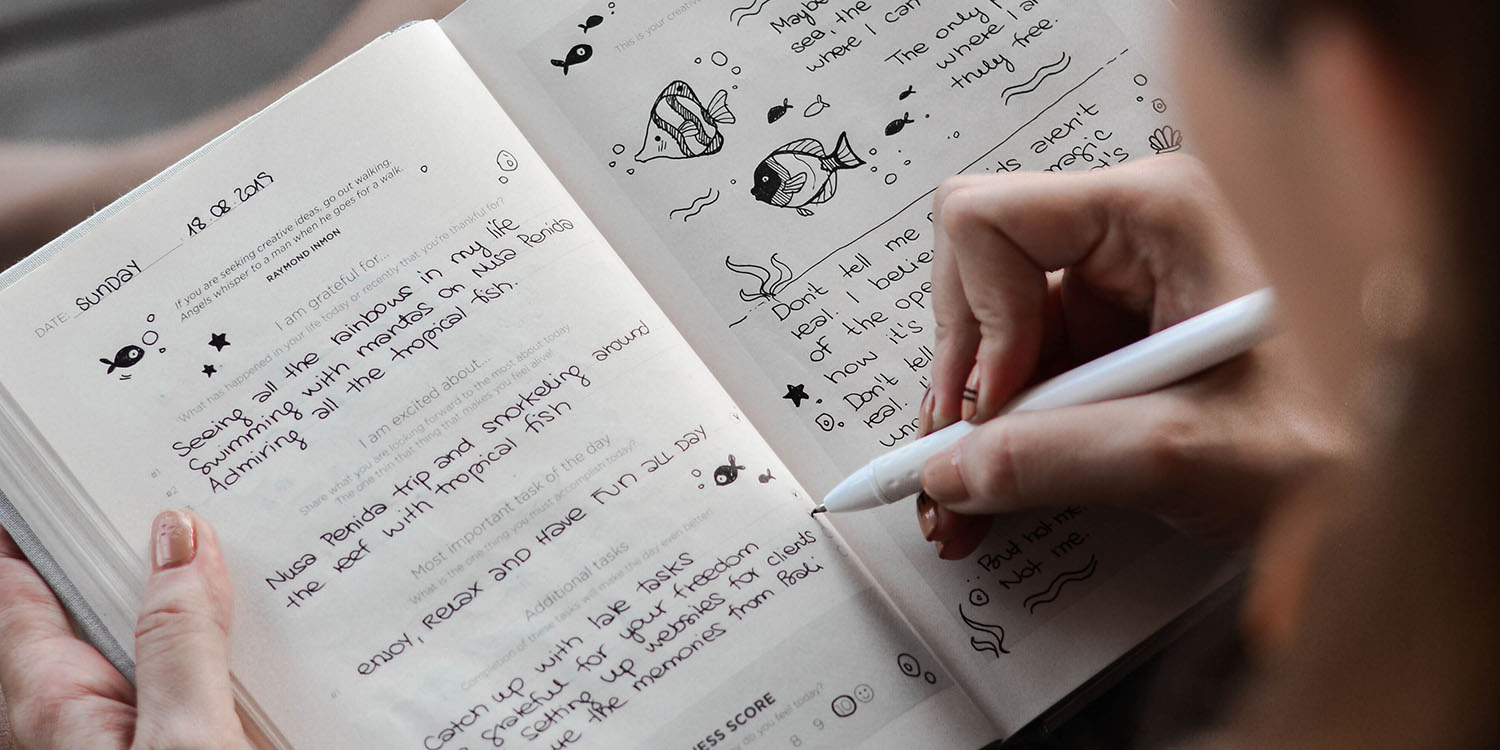 DATE: SUNDAY 18.08.2019
If you are seeking creative ideas, go out walking.
Angels whisper to a man when he goes for a walk.
RAYMOND INMON
I am grateful for...
What has happened in your life today or recently that you're thankful for?
Seeing all the rainbows in my life
#1 Swimming with mantas on Nusa Penida
#2 Admiring all the tropical fish.
I am excited about...
Share what you are looking forward to the most about today
The one thing that makes you feel alive!
Nusa Penida trip and snorkeling around
the reef with tropical fish
Most important task of the day
What is the one thing you must accomplish today?
#1 ENJOY, RELAX AND HAVE FUN ALL DAY
Additional tasks
Completion of these tasks will make the day even better!
Catch up with late tasks
grateful for your freedom
setting up websites for clients
the memories from Bali
NESS SCORE
do you feel today?
8 9 10
This is your creative
Maybe
sea, the
where I can
The only
where I a
truly free.
aren't
magic
Don't tell me
real. I believe
of the ope
how it's
Don't tell
real.
But not me.
Not me.